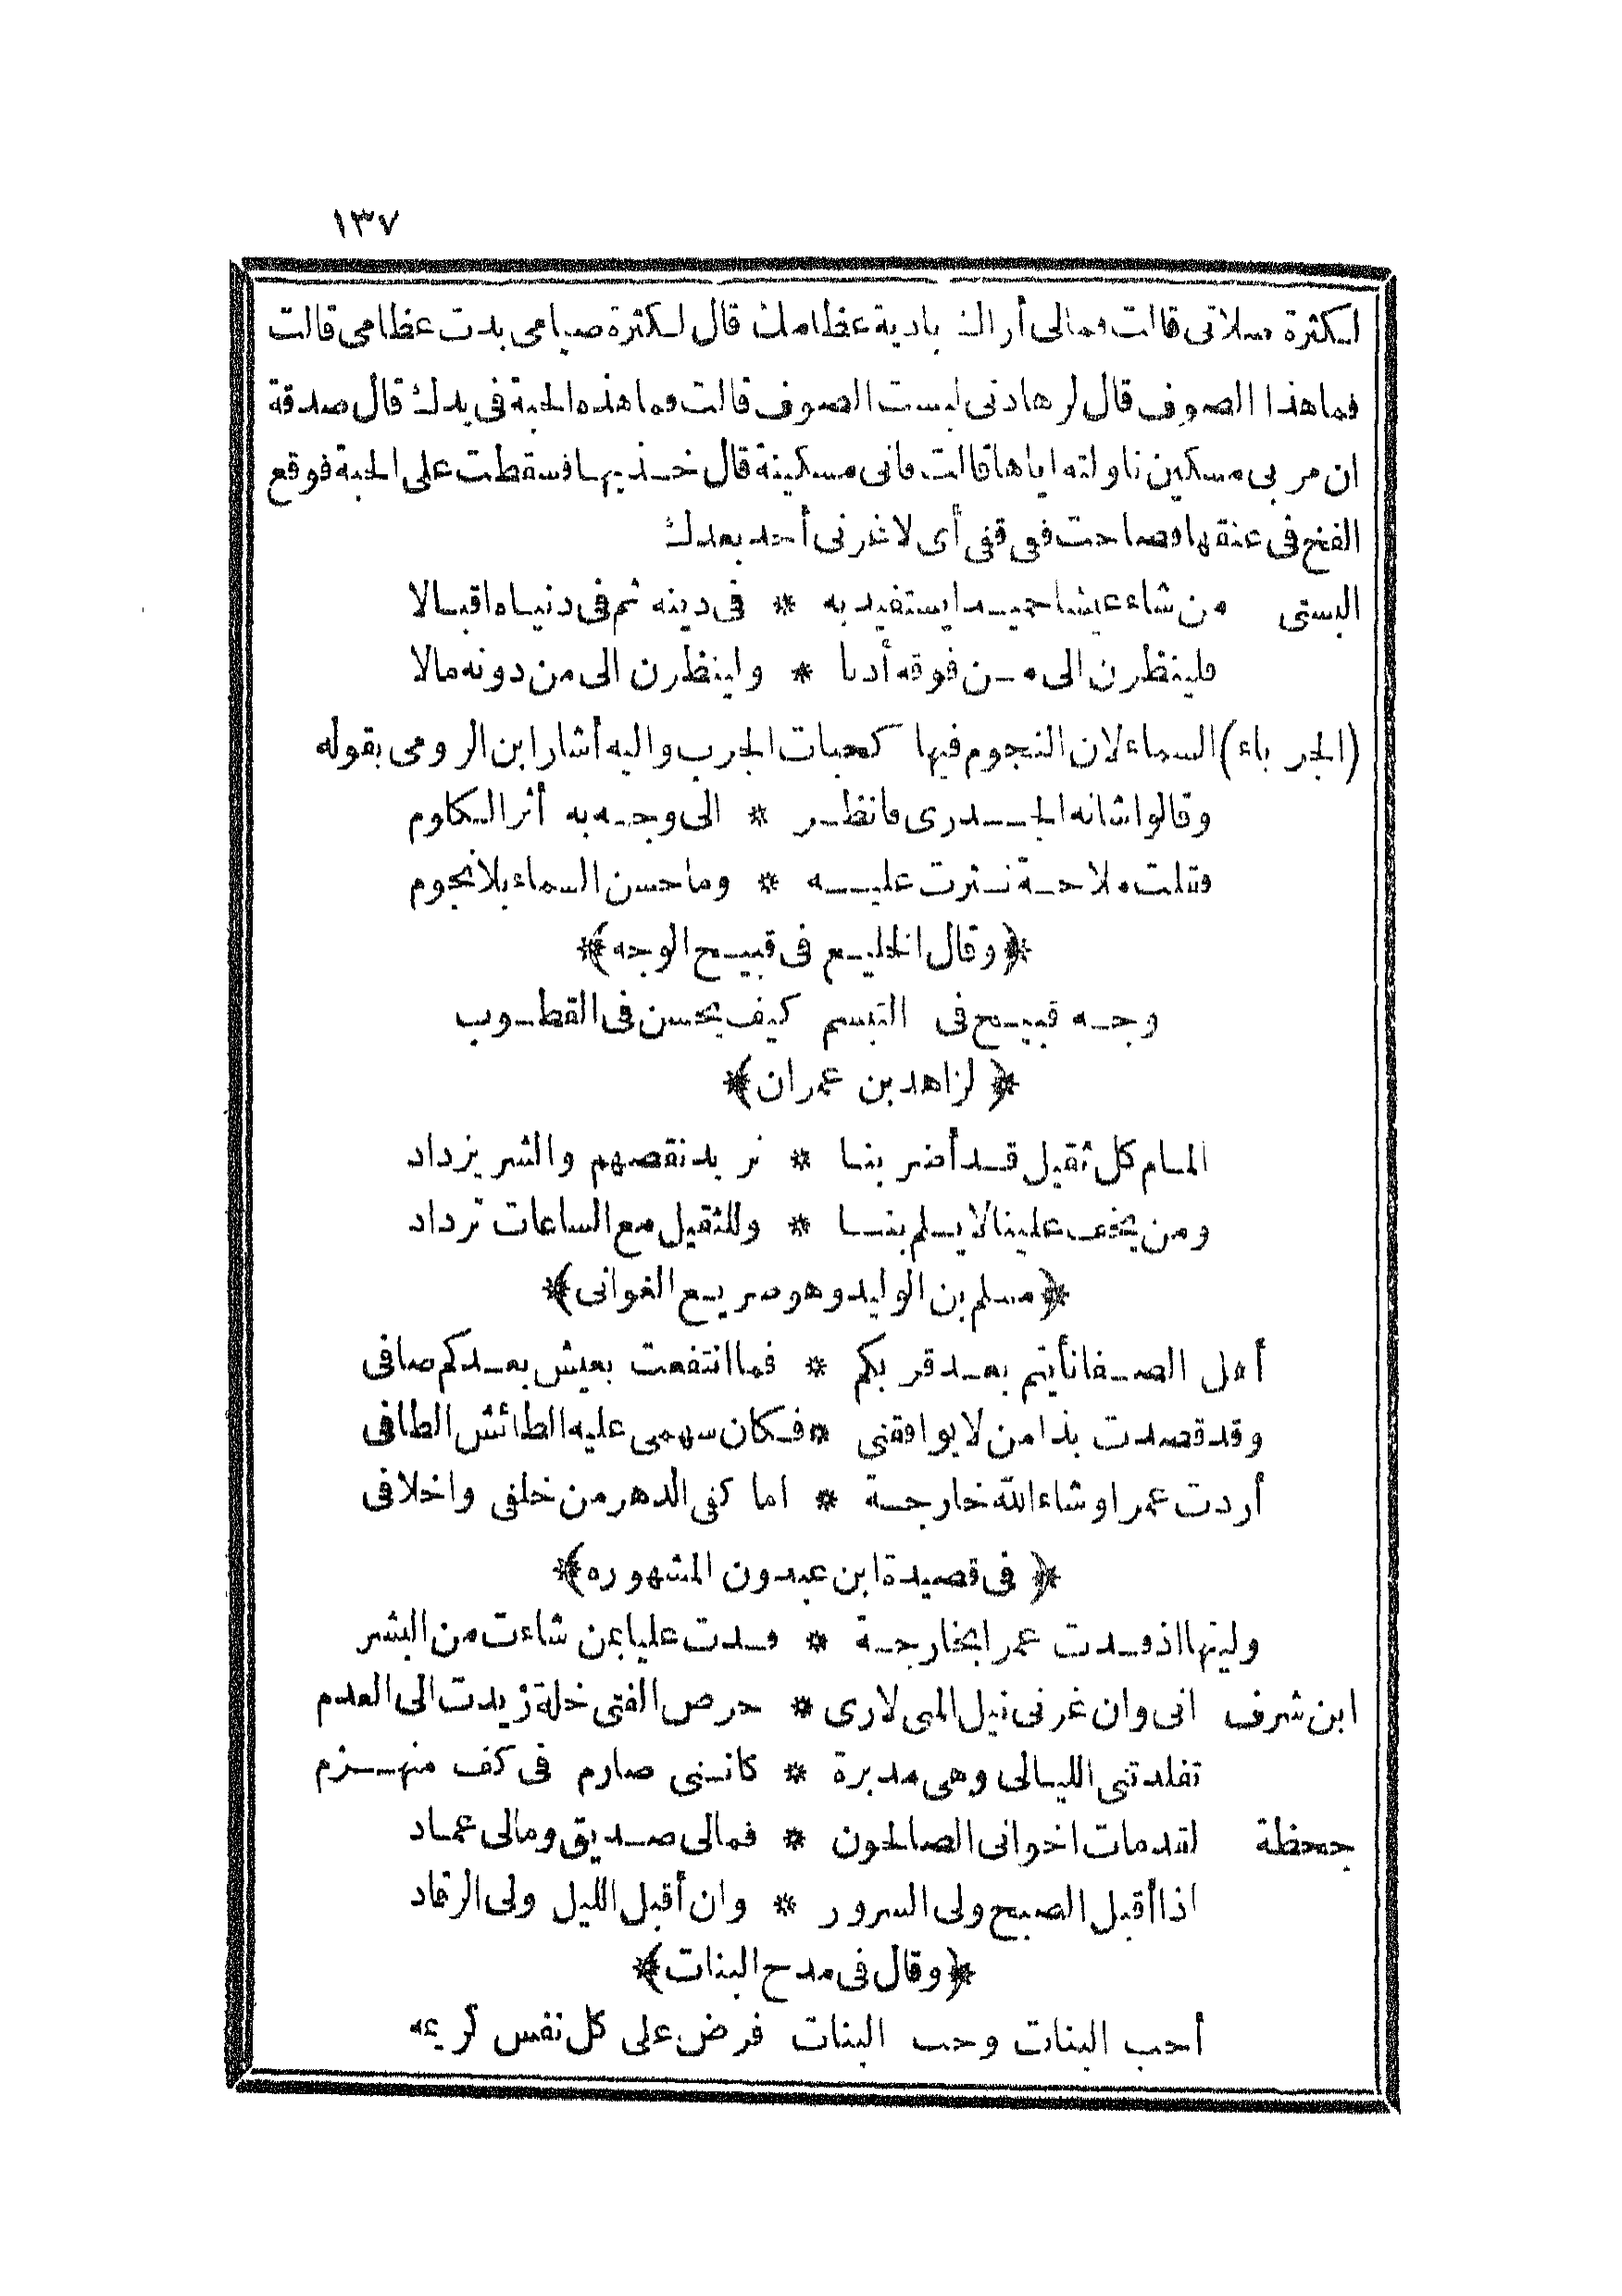 ١٣٧
لكثرة صلاتى قالت فمالى أراك بادية عظامك قال لكثرة صيامى بدت عظامى قالت
فما هذا الصوف قال لزهادتى لبست الصوف قالت فما هذه الحبة فى يدك قال صدقة
ان مر بى مسكين ناولته اياها قالت فانى مسكينة قال خذيها فسقطت على الحبة فوقع
الفخ فى عنقها فصاحت قفى قفى أى لا غرنى أحد بعدك
البستى من شاء عيشا حميدا يستفيد به * فى دينه ثم فى دنياه اقبالا
فلينظرن الى من فوقه أدبا * ولينظرن الى من دونه مالا
(الجرباء) السماء لان النجوم فيها كحبات الجرب واليه أشار ابن الرومى بقوله
وقالوا شانه الجدرى فانظر * الى وجه به أثر الكلوم
فقلت ملاحة نثرت عليه * وما حسن السماء بلا نجوم
﴿وقال الخليع فى قبيح الوجه﴾
وجه قبيح فى التبسم كيف يحسن فى القطوب
﴿لزاهد بن عمران﴾
المام كل ثقيل قد أضر بنا * نريد نقصهم والشر يزداد
ومن يخف علينا لا يسلم بنا * وللثقيل مع الساعات ترداد
﴿مسلم بن الوليد وهو صريع الغوانى﴾
أهل الصفا نأيتم بعد قربكم * فما انتفعت بعيش بعدكم صافى
وقد قصدت بذا من لا يوافقنى * فكان سهمى عليه الطائش الطافى
أردت عمرا وشاء الله خارجة * اما كفى الدهر من خلفى واخلافى
﴿فى قصيدة ابن عبدون المشهوره﴾
وليتها اذ فدت عمرا بخارجة * فدت عليا بمن شاءت من البشر
ابن شرف انى وان غرنى نيل المنى لارى * حرص الفتى خلة زيدت الى العدم
تقلدتنى الليالى وهى مدبرة * كاننى صارم فى كف منهزم
جحظة لقد مات اخوانى الصالحون * فمالى صديق ومالى عماد
اذا أقبل الصبح ولى السرور * وان أقبل الليل ولى الرقاد
﴿وقال فى مدح البنات﴾
أحب البنات وحب البنات فرض على كل نفس كريمه